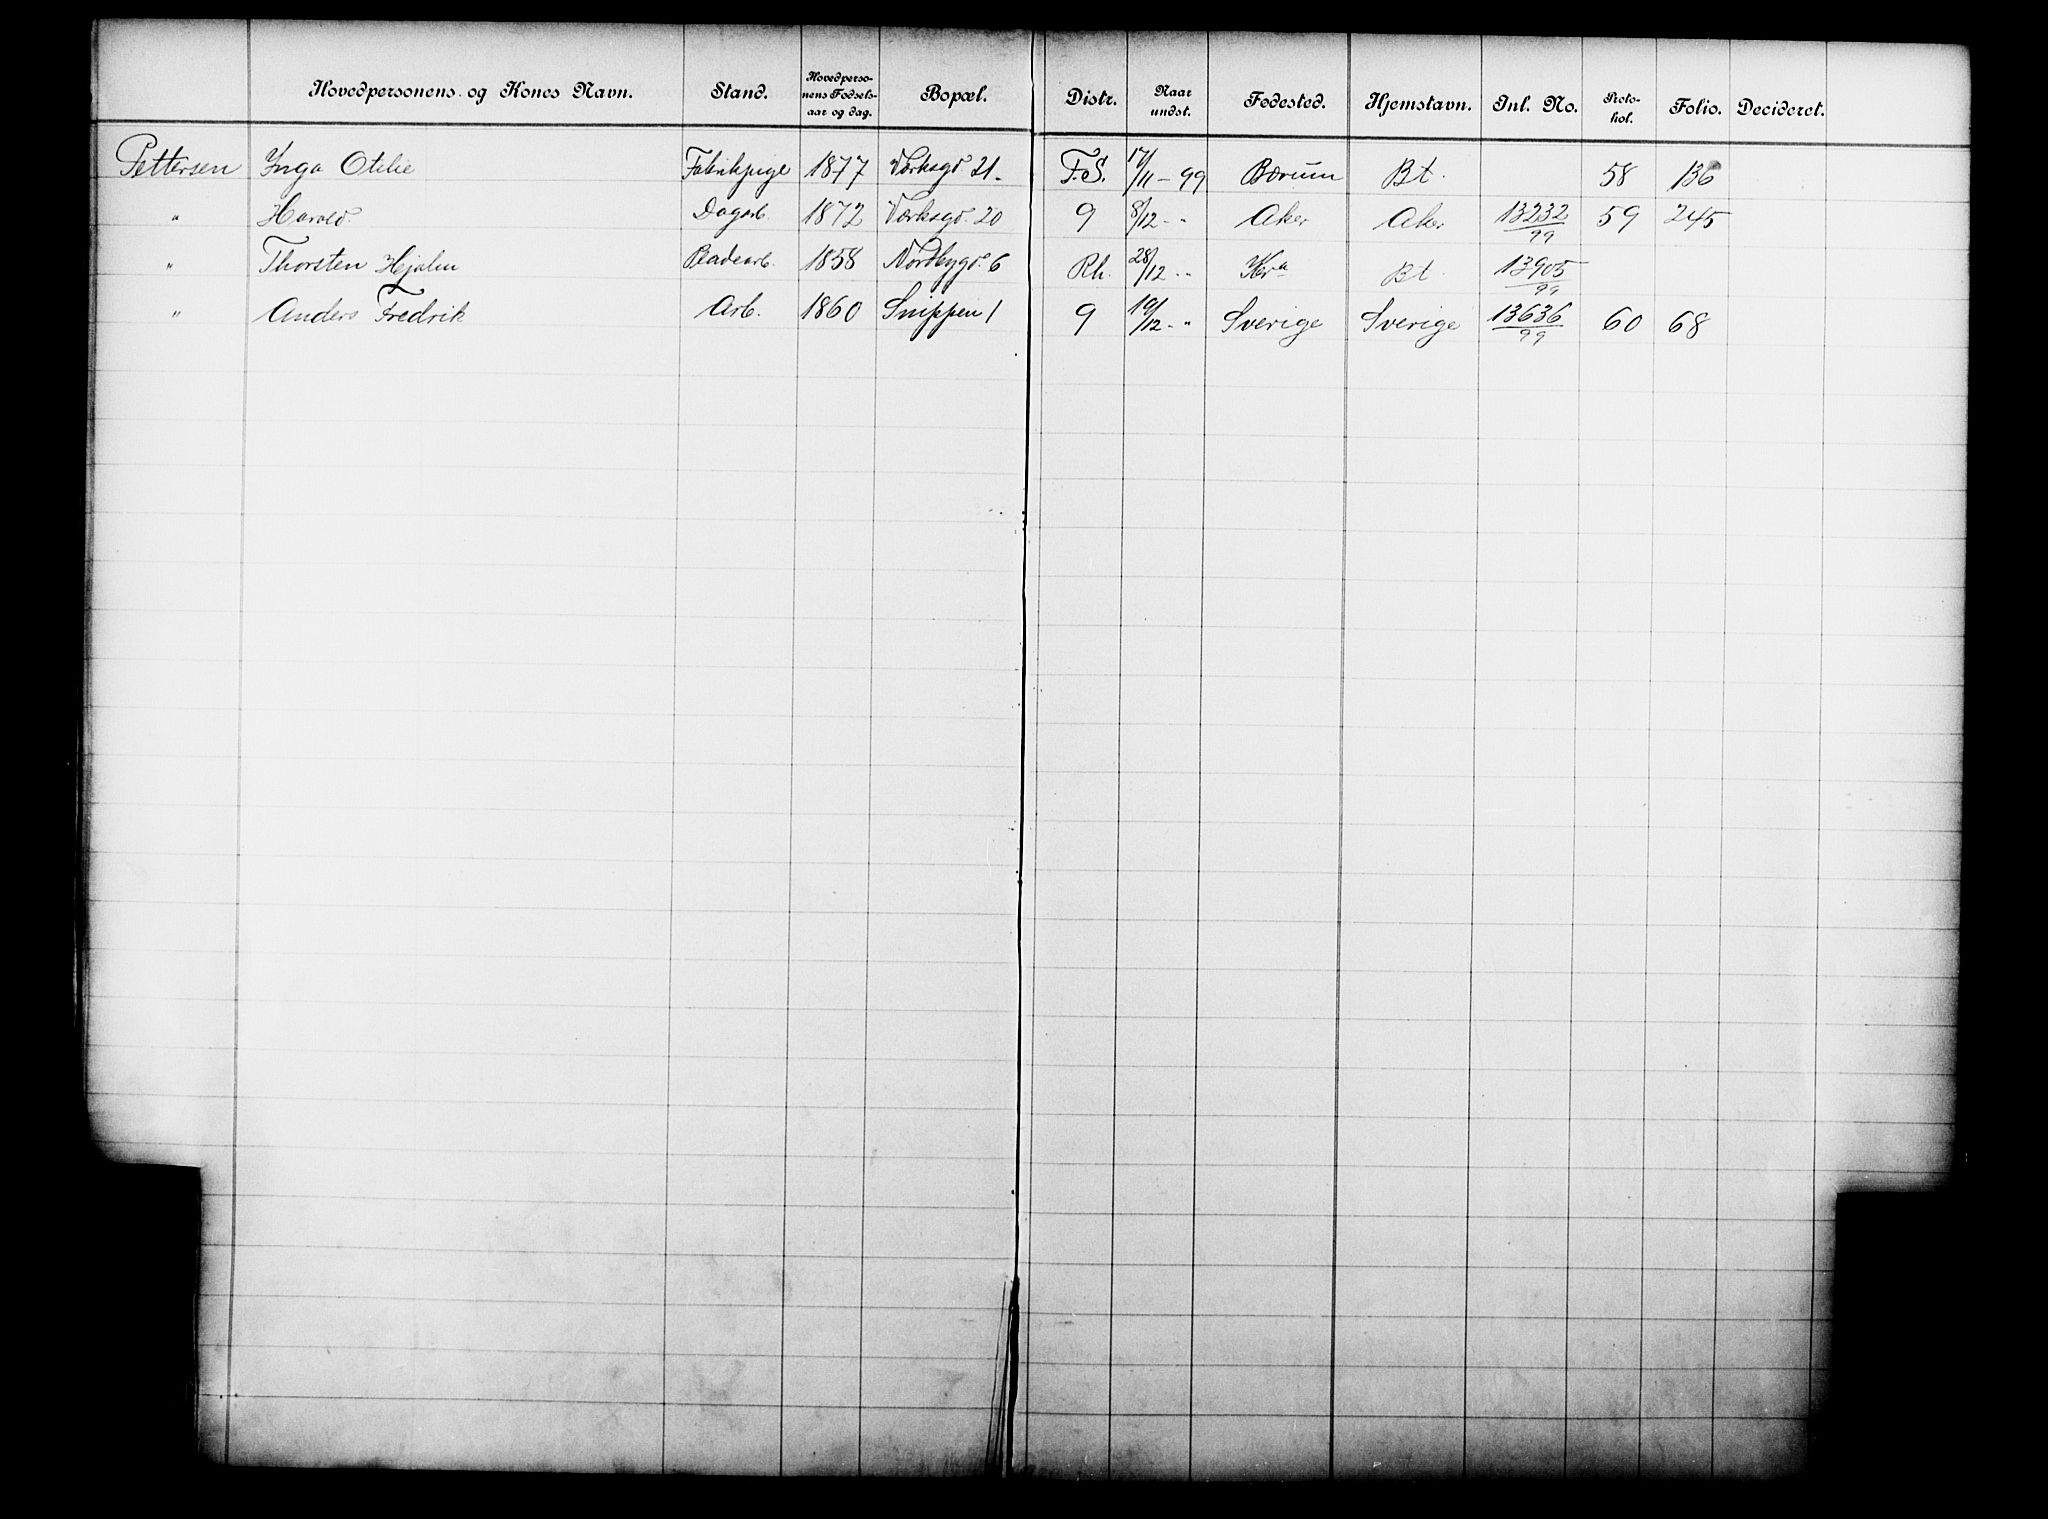 Hovedpersonens og Kones Navn. Stand. Hovedperso-nens Fødsels-aar og dag. Bopæl. Distr. Naar undst. Fødested. Hjemstavn. Jnl. No. Proto-kol. Folio. Decideret.
Pettersen Inga Otilie Fabrikpige 1877 Værksgd. 21. F.S. 17/11 - 99 Bærum Bt. 58 136
" Harald Dagarb. 1872 Værksgd. 20 9 8/12 - " Aker Aker 13232/99 59 245
" Thorsten Hjalm 1858 Nordbygd. 6 Rh. 28/12 - " Kra Bt. 13905/99
" Anders Fredrik Arb. 1860 Snippen 1 9 19/12 - " Sverige Sverige 13636/99 60 68